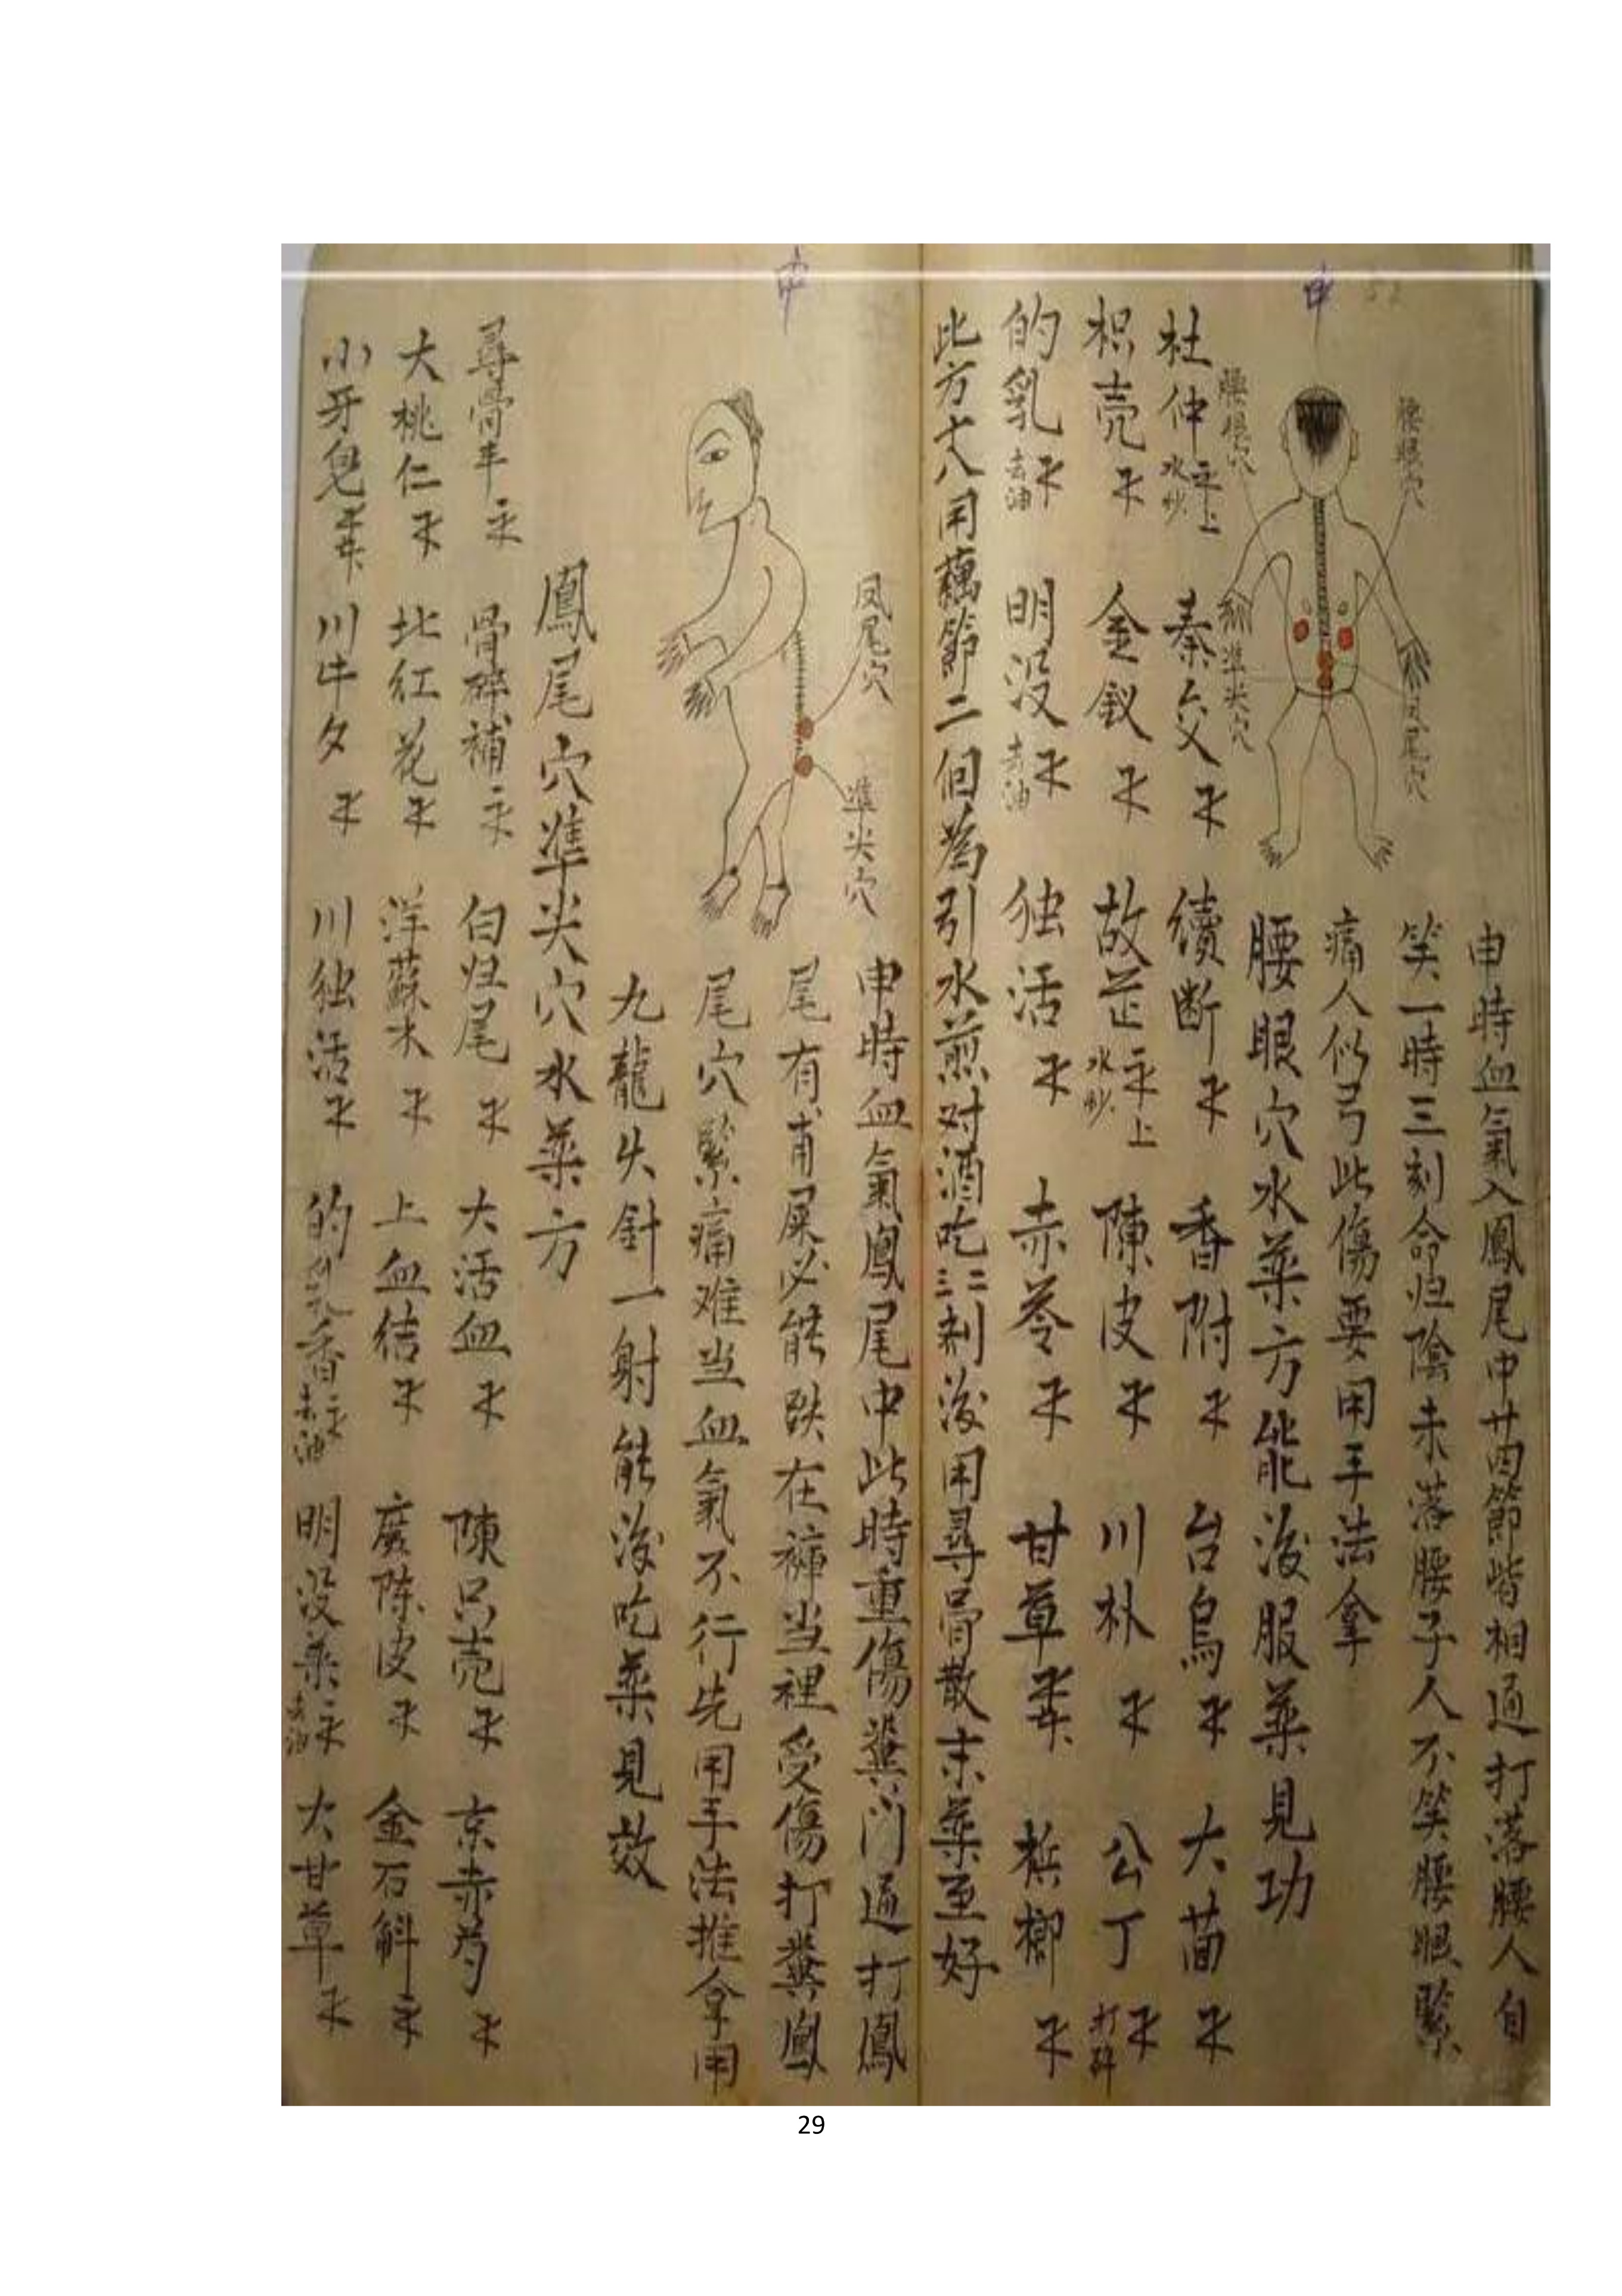 申
腰眼穴
腰眼穴
準尖穴
凤尾穴
申時血氣入鳳尾中廿四節皆相通打落腰人自
笑一時三刻命归陰未落腰子人不笑腰眼緊
痛人似弓此傷要用手法拿
腰眼穴水薬方能後服薬見功
杜仲 水炒 上 秦艽 續断 香附 台烏 大茴
枳壳 金釵 故芷 水炒 上 陳皮 川朴 公丁 打碎
的乳 去油 明没 去油 独活 赤苓 甘草 梹榔
此方 用藕節二個為引水煎对酒吃三二剤後用尋骨散末薬至好
申
凤尾穴
準尖穴
申時血氣鳳尾中此時重傷糞门通打鳳
尾有 屎必能 在褲当裡受傷打糞鳳
尾穴緊痛难当血氣不行先用手法推拿用
九龍失針一射能後吃薬見效
鳳尾穴準尖穴水薬方
尋骨丰 骨碎補 白归尾 大活血 陳只壳 京赤芍
大桃仁 北红花 洋蘇木 上血结 廣陈皮 金石斛
小牙皂 川牛夕 川独活 的乳香 去油 明没薬 去油 大甘草
29